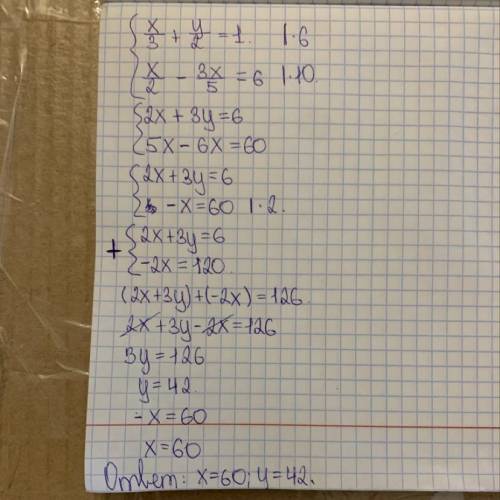 {x/3 + y/2 = 1. |·6
{x/2 - 3x/5 = 6 |·10.
{2x + 3y = 6
{5x - 6x = 60
{2x + 3y = 6
{-x = 60 |·2.
+{2x + 3y = 6
{-2x = 120.
(2x + 3y) + (-2x) = 126.
2x + 3y - 2x = 126
3y = 126
y = 42.
-x = 60
x = 60
Ответ: x = 60; y = 42.